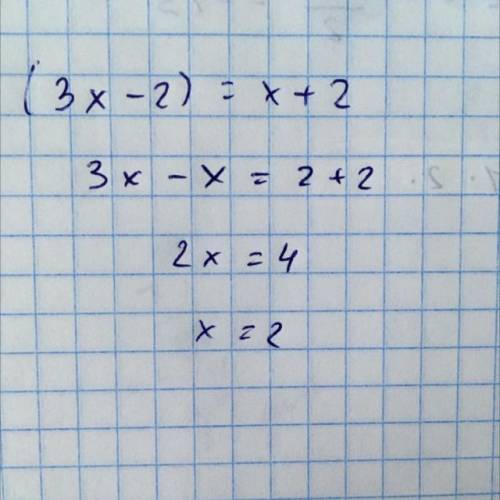 (3x-2) = x+2
3x - x = 2+2
2x = 4
x = 2